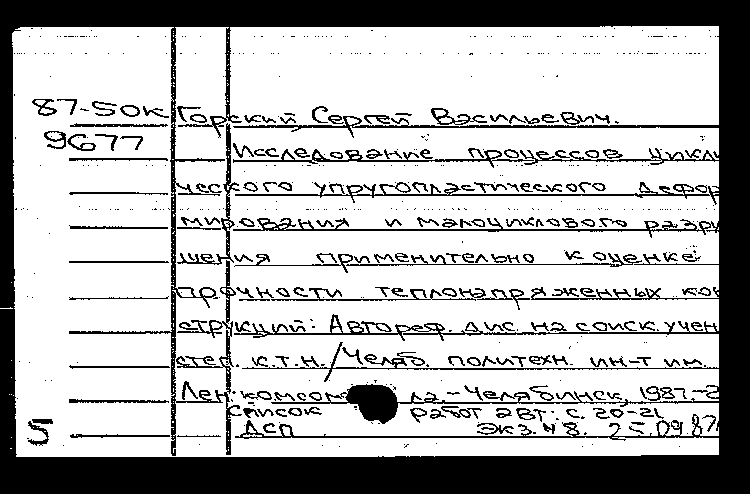 87-50к Горский, Сергей Васильевич.
9677 Исследование процессов цикли
ческого упругопластического дефор
мирования и малоциклового разру
шения применительно к оценке
прочности теплонапряженных кон
струкций: Автореф. дис. на соиск. учен
степ. к.т.н. / Челяб. политехн. ин-т им.
Лен. комсом ла. - Челябинск, 1987. - 2
Список работ авт.: с. 20-21
5 ДСП Экз. № 8. 25.09.87